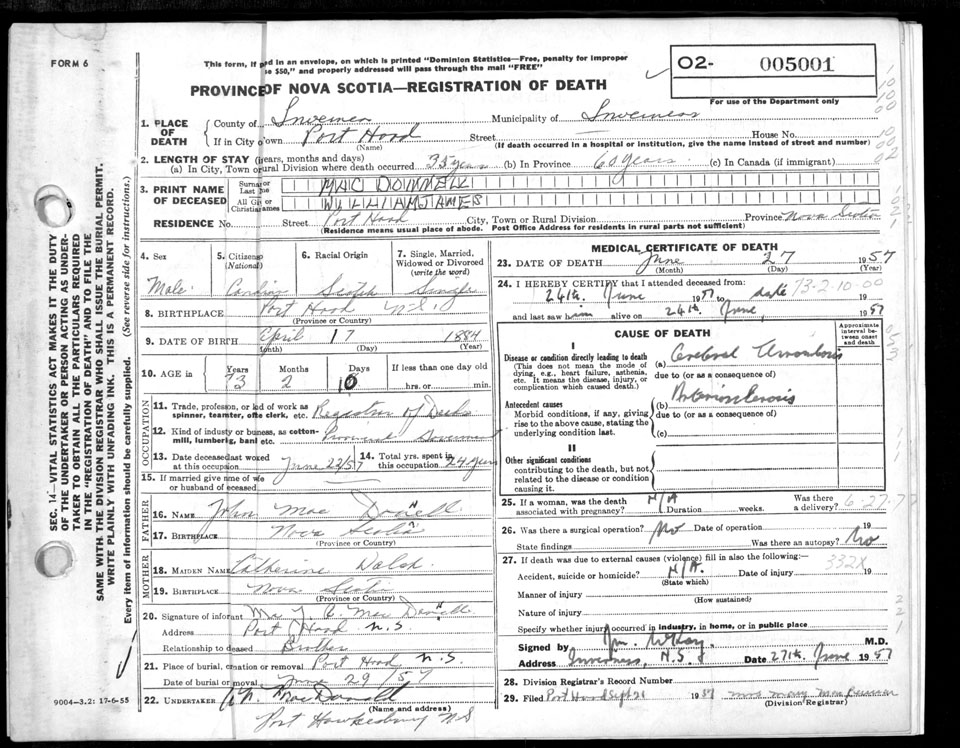 FORM 6
This form, if ed in an envelope, on which is printed "Dominion Statistics—Free, penalty for improper
e $50," and properly addressed will pass through the mail "FREE"
PROVINCE OF NOVA SCOTIA—REGISTRATION OF DEATH
O2- 005001
For use of the Department only
1. PLACE OF DEATH
County of Inverness Municipality of Inverness
If in City own Port Hood Street House No.
(Name) (If death occurred in a hospital or institution, give the name instead of street and number)
2. LENGTH OF STAY (years, months and days)
(a) In City, Town or rural Division where death occurred 35 years (b) In Province 60 years (c) In Canada (if immigrant)
3. PRINT NAME OF DECEASED
Surname or Last me MAC DONNELL
All Gi or Christian ames WILLIAM JAMES
RESIDENCE No. Street Port Hood City, Town or Rural Division Province Nova Scotia
(Residence means usual place of abode. Post Office Address for residents in rural parts not sufficient)
4. Sex Male
5. Citizens (National) Canadian
6. Racial Origin Scotch
7. Single, Married, Widowed or Divorced (write the word) Single
8. BIRTHPLACE Port Hood N.S.
(Province or Country)
9. DATE OF BIRTH April 17 1884
(Month) (Day) (Year)
10. AGE in Years Months Days If less than one day old
73 2 10 hrs. or min.
OCCUPATION
11. Trade, profession, or kind of work as spinner, teamster, office clerk, etc. Registrar of Deeds
12. Kind of industry or business, as cotton-mill, lumbering, bank etc. Provincial Government
13. Date deceased last worked at this occupation June 22/57
14. Total yrs. spent in this occupation 24 years
15. If married give name of wife or husband of deceased
FATHER
16. Name John Mac Donnell
17. Birthplace Nova Scotia
(Province or Country)
MOTHER
18. Maiden Name Catherine Walsh
19. Birthplace Nova Scotia
(Province or Country)
20. Signature of informant Mac Donnell
Address Port Hood N.S.
Relationship to deceased Brother
21. Place of burial, cremation or removal Port Hood N.S.
Date of burial or removal June 29/57
22. UNDERTAKER MacDonnell
(Name and address)
Port Hawkesbury NS
9004-3.2: 17-6-55
SEC. 14—VITAL STATISTICS ACT MAKES IT THE DUTY
OF THE UNDERTAKER OR PERSON ACTING AS UNDER-
TAKER TO OBTAIN ALL THE PARTICULARS REQUIRED
IN THE "REGISTRATION OF DEATH" AND TO FILE THE
SAME WITH THE DIVISION REGISTRAR WHO SHALL ISSUE THE BURIAL PERMIT.
WRITE PLAINLY WITH UNFADING INK. THIS IS A PERMANENT RECORD.
Every item of information should be carefully supplied. (See reverse side for instructions.)
MEDICAL CERTIFICATE OF DEATH
23. DATE OF DEATH June 27 1957
(Month) (Day) (Year)
24. I HEREBY CERTIFY that I attended deceased from:
24th June 1957 to date 73-2-10-00
and last saw him alive on 24th June, 1957
CAUSE OF DEATH
Approximate interval between onset and death
I
Disease or condition directly leading to death
(This does not mean the mode of dying, e.g., heart failure, asthenia, etc. It means the disease, injury, or complication which caused death.)
(a) Cerebral Thrombosis
due to (or as consequence of)
Antecedent causes
Morbid conditions, if any, giving rise to the above cause, stating the underlying condition last.
(b) Arteriosclerosis
due to (or as a consequence of)
(c)
II
Other significant conditions
contributing to the death, but not related to the disease or condition causing it.
25. If a woman, was the death associated with pregnancy? N/A Duration weeks. Was there a delivery? 6-27-7
26. Was there a surgical operation? No Date of operation 19
State findings Was there an autopsy? No
27. If death was due to external causes (violence) fill in also the following:—
Accident, suicide or homicide? N/A. Date of injury 19
(State which) 332X
Manner of injury
(How sustained)
Nature of injury
Specify whether injury occurred in industry, in home, or in public place
Signed by M.D.
Address Inverness, N.S. Date 27th June 1957
28. Division Registrar's Record Number
29. Filed Port Hood Sept 20 1957 Mrs Mary Mac
(Division Registrar)